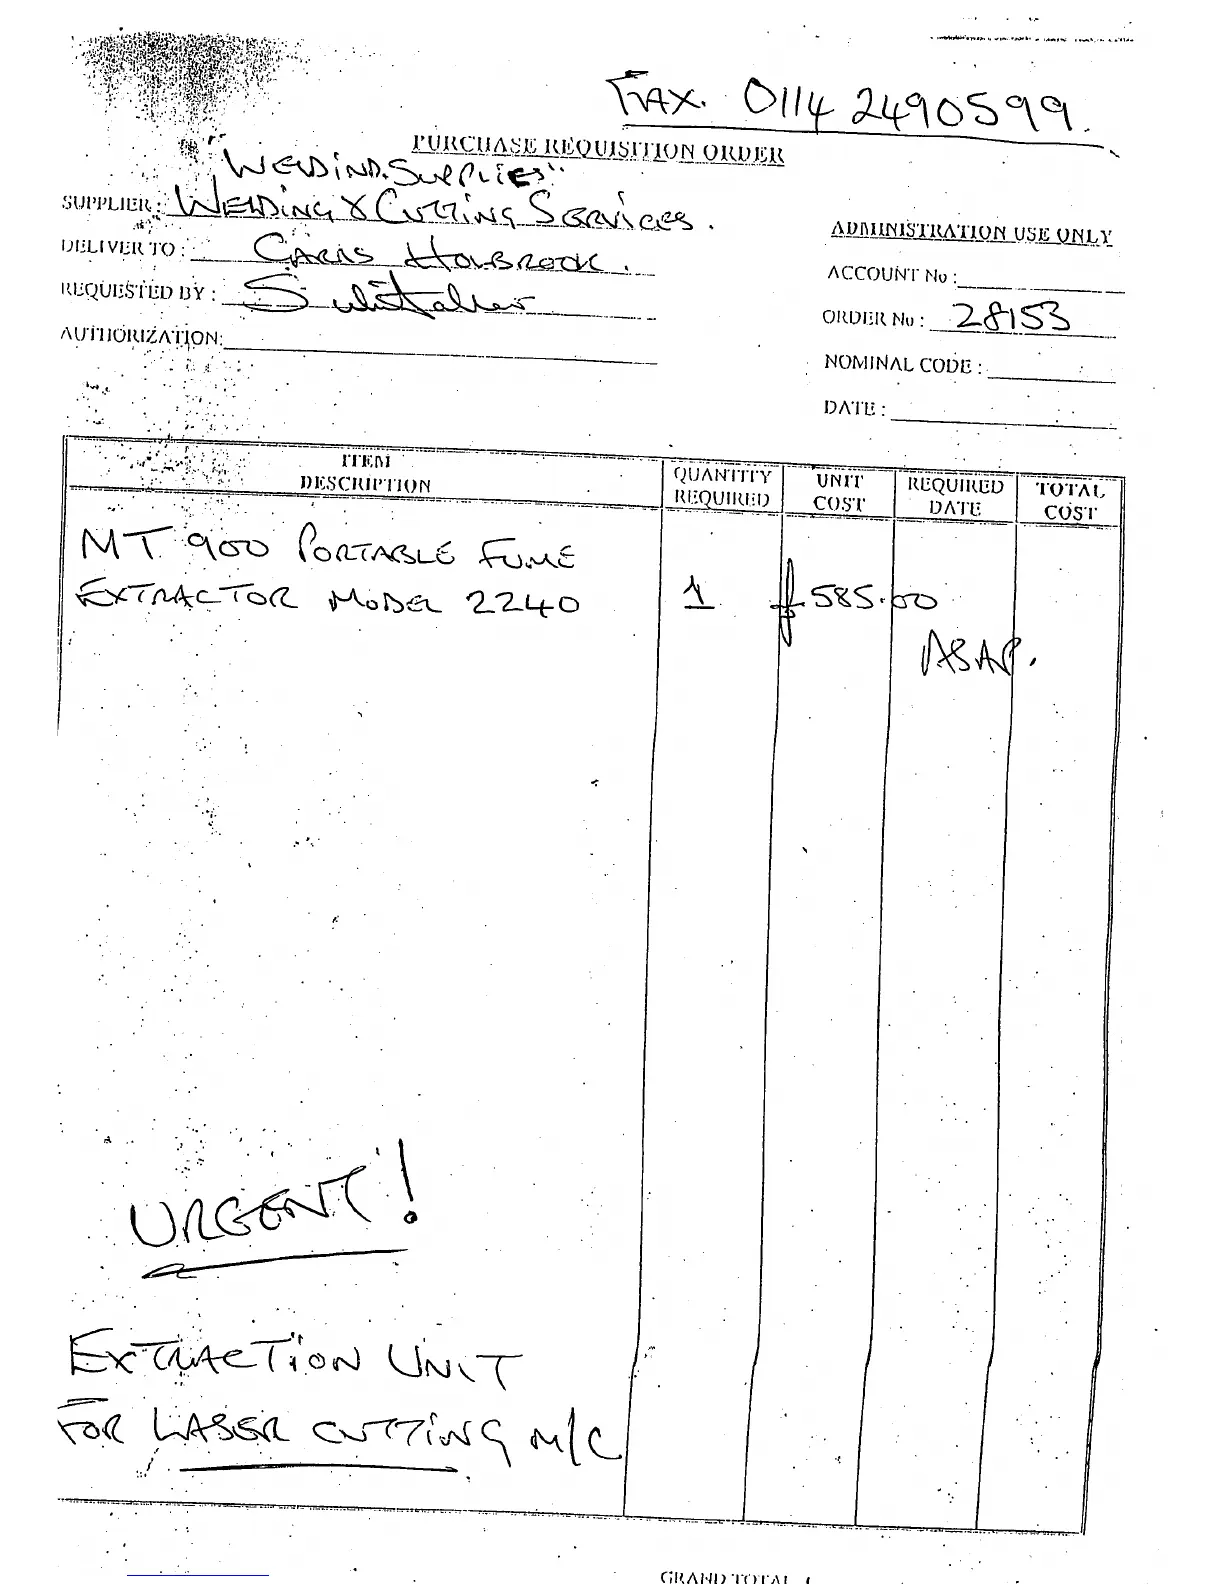 FAX. 0114 2490599.
PURCHASE REQUISITION ORDER
"WELDING SUPPLIES"
SUPPLIER: WELDING & CUTTING SERVICES.
DELIVER TO:
REQUESTED BY: S Whittaker
AUTHORIZATION:
ADMINISTRATION USE ONLY
ACCOUNT No:
ORDER No: 28153
NOMINAL CODE:
DATE:
ITEM DESCRIPTION QUANTITY REQUIRED UNIT COST REQUIRED DATE TOTAL COST
MT 900 PORTABLE FUME
EXTRACTOR MODEL 2240 1 £585.00
ASAP.
URGENT!
EXTRACTION UNIT
FOR LASER CUTTING M/C
GRAND TOTAL £